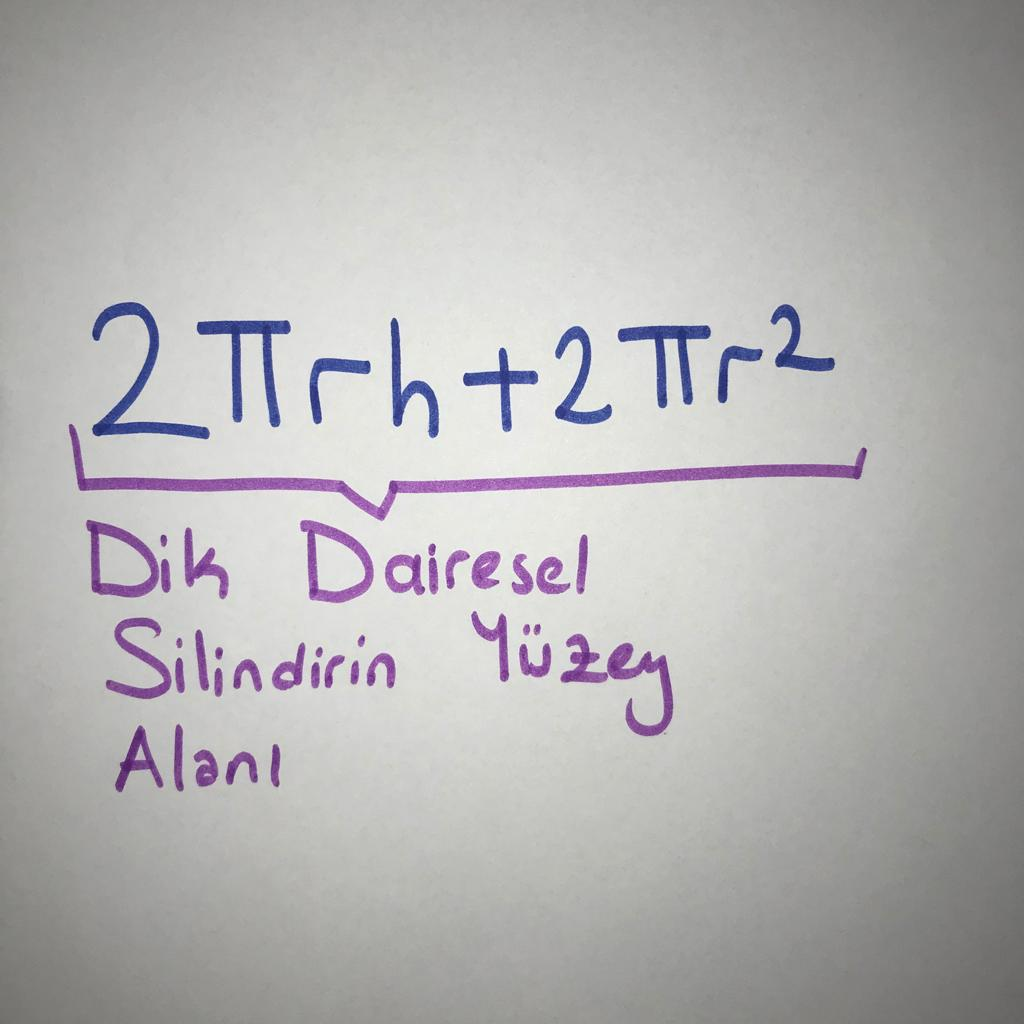 2πrh+2πr²
Dik Dairesel
Silindirin Yüzey
Alanı